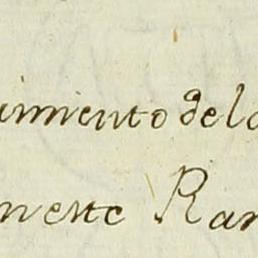 imiento de la
neste Ran